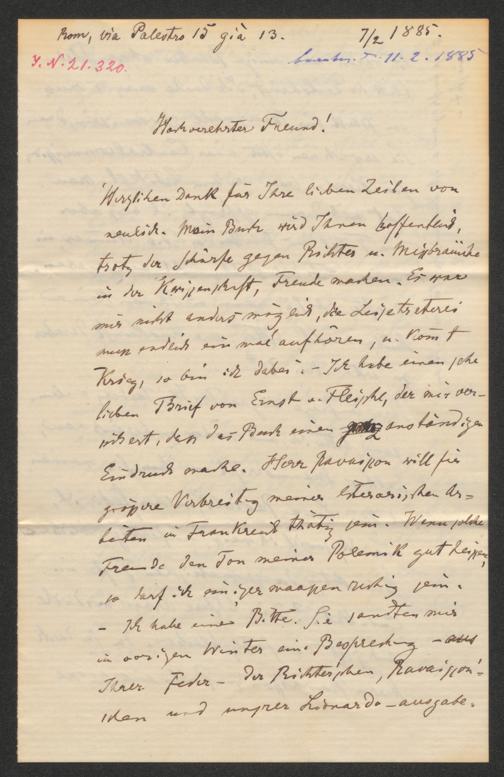 Rom, via Palestro 15 già 13. 7/2 1885.
J. N. 21.320.
beantw. 11.2.1885
Hochverehrter Freund!
Herzlichen Dank für Ihre lieben Zeilen von
neulich. Mein Buch wird Ihnen hoffentlich,
trotz der Schärfe gegen Richter u. Misbräuche
in der Kwissenschaft, Freude machen. Es war
mir nicht anders möglich, die Leisetreterei
muss endlich ein mal aufhören, u. komt
Krieg, so bin ich dabei. – Ich habe einen sehr
lieben Brief von Ernst v. Fleischl, der mir ver-
sichert, dass das Buch einen anständigen
Eindruck mache. Herr Ravaisson will für
grössere Verbreitg meiner literarischen Ar-
beiten in Frankreich thätig sein. Wenn solche
Freunde den Ton meiner Polemik gut heissen,
so darf ich einigermaassen ruhig sein.
– Ich habe eine Bitte. Sie sandten mir
im vorigen Winter eine Besprechg – aus
Ihrer Feder – der Richterschen, Ravaisson'-
schen und unsrer Lionardo-ausgabe.